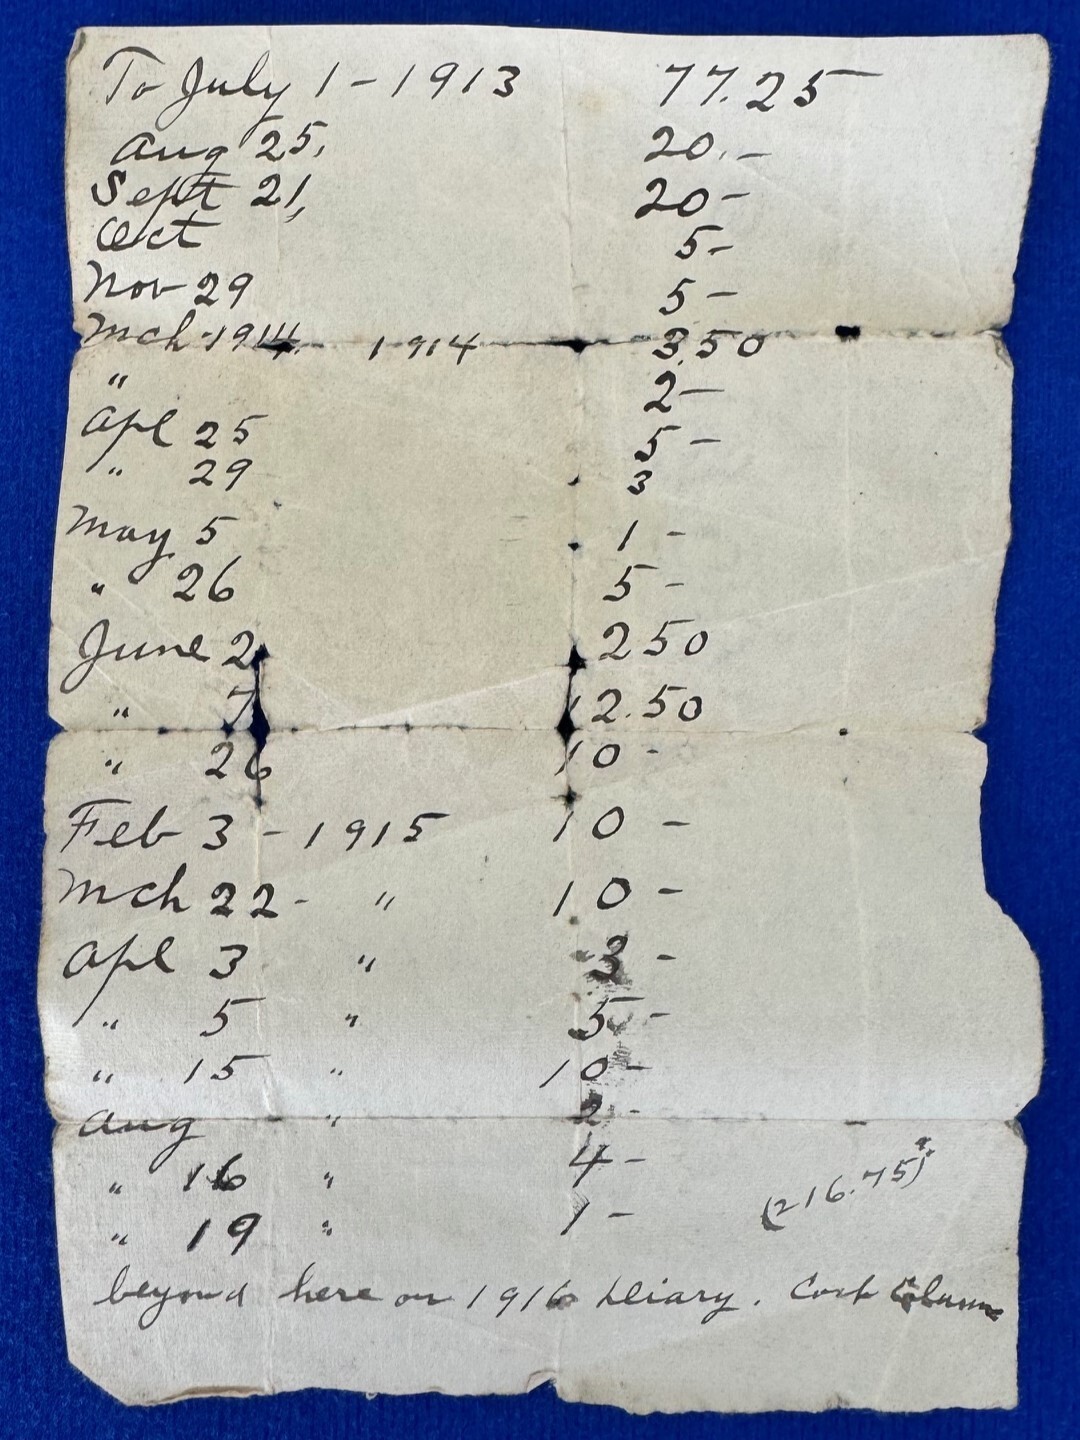 To July 1 - 1913 77.25
Aug 25, 20.-
Sept 21, 20-
Oct 5-
Nov 29 5-
Mch 1914 1914 3.50
" 2-
Apl 25 5-
" 29 3
May 5 1-
" 26 5-
June 2 250
" 7 12.50
" 26 10-
Feb 3 - 1915 10-
Mch 22 - " 10-
Apl 3 " 3-
" 5 " 5-
" 15 " 10-
Aug " 2-
" 16 " 4-
" 19 " 1-
(216.75)
beyond here on 1916 Diary. Cash Column